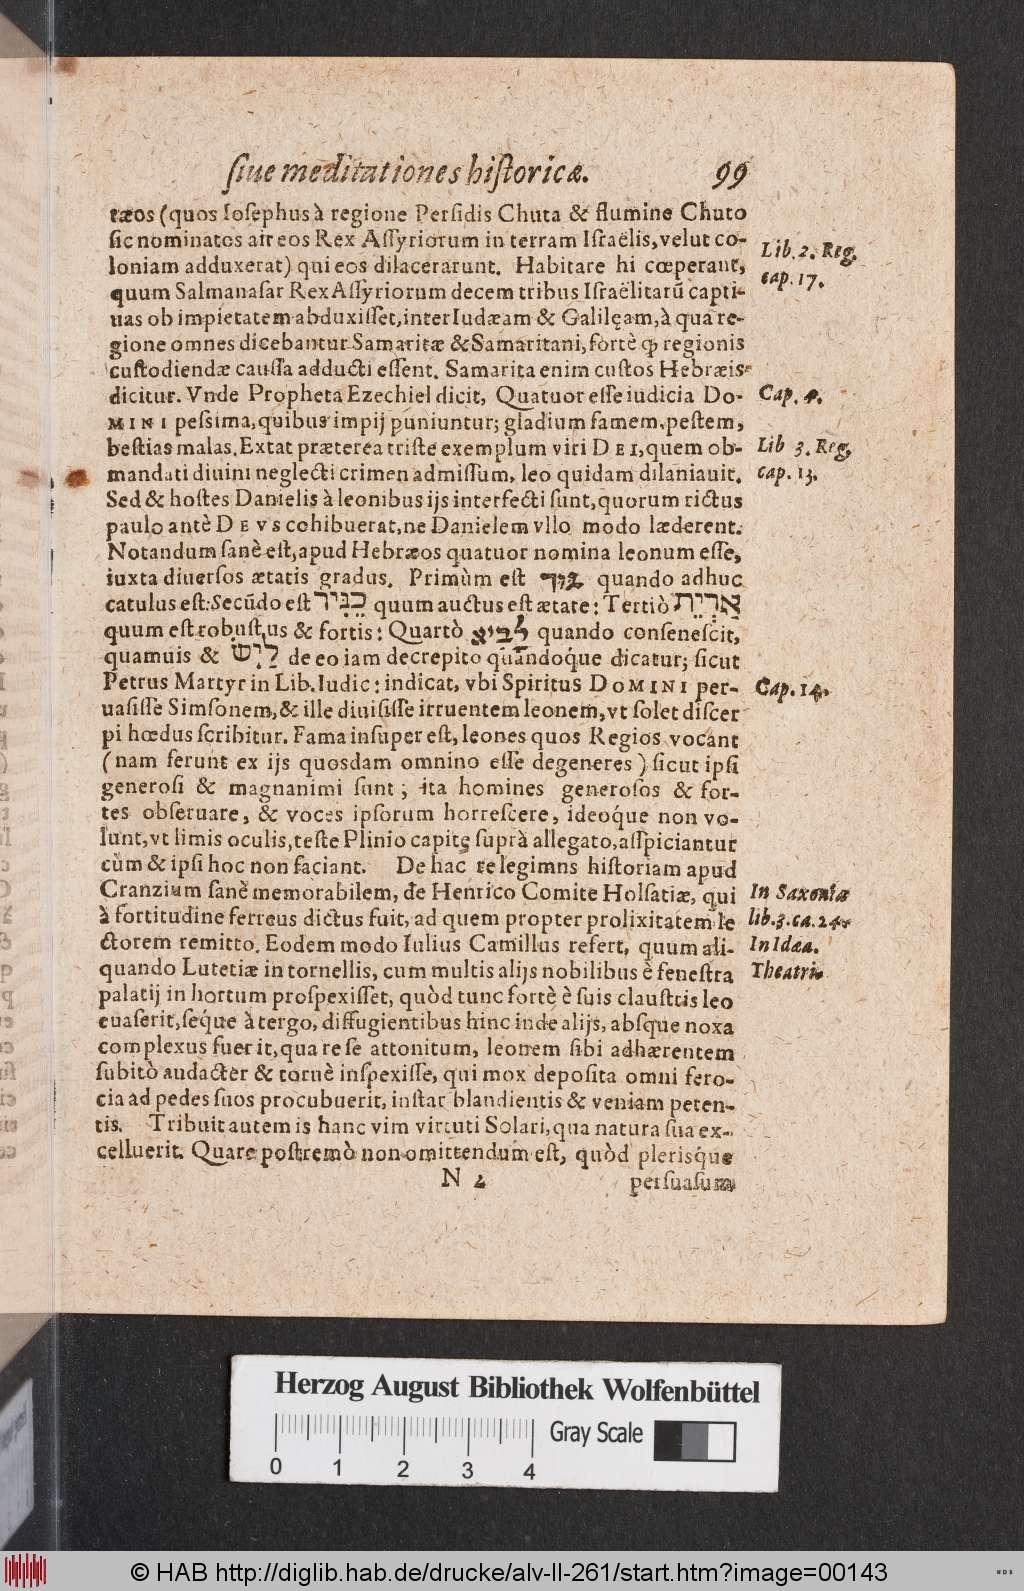 siue meditationes historicæ. 99
tæos (quos Iosephus à regione Persidis Chuta & flumine Chuto
sic nominatos ait eos Rex Assyriorum in terram Israëlis, velut co-
loniam adduxerat) qui eos dilacerarunt. Habitare hi cœperant,
Lib. 2. Reg.
cap. 17.
quum Salmanasar Rex Assyriorum decem tribus Israëlitarũ capti-
uas ob impietatem abduxisset, inter Iudæam & Galilęam, à qua re-
gione omnes dicebantur Samaritæ & Samaritani, fortè ꝙ regionis
custodiendæ caussa adducti essent. Samarita enim custos Hebræis
dicitur. Vnde Propheta Ezechiel dicit, Quatuor esse iudicia Do-
Cap. 4.
MINI pessima, quibus impij puniuntur; gladium famem, pestem,
bestias malas. Extat præterea triste exemplum viri DEI, quem ob
Lib 3. Reg.
mandati diuini neglecti crimen admissum, leo quidam dilaniauit.
cap. 13.
Sed & hostes Danielis à leonibus ijs interfecti sunt, quorum rictus
paulo antè DEVS cohibuerat, ne Danielem vllo modo læderent.
Notandum sanè est, apud Hebræos quatuor nomina leonum esse,
iuxta diuersos ætatis gradus. Primùm est quando adhuc
catulus est: Secũdo est כְּבִּיר quum auctus est ætate: Tertiò אַרְיֵת
quum est robustus & fortis: Quartò לְבִיא quando consenescit,
quamuis & לַיִשׁ de eo iam decrepito quandoque dicatur; sicut
Petrus Martyr in Lib. Iudic: indicat, vbi Spiritus DOMINI per-
Cap. 14.
uasisse Simsonem, & ille diuisisse irruentem leonem, vt solet discer
pi hœdus scribitur. Fama insuper est, leones quos Regios vocant
(nam ferunt ex ijs quosdam omnino esse degeneres) sicut ipsi
generosi & magnanimi sunt; ita homines generosos & for-
tes obseruare, & voces ipsorum horrescere, ideóque non vo-
lunt, vt limis oculis, teste Plinio capite suprà allegato, asspiciantur
cùm & ipsi hoc non faciant. De hac re legimns historiam apud
Cranzium sanè memorabilem, de Henrico Comite Holsatiæ, qui
In Saxonia
à fortitudine ferreus dictus fuit, ad quem propter prolixitatem le
lib. 3. ca. 24.
ctorem remitto. Eodem modo Iulius Camillus refert, quum ali-
In Idæa.
quando Lutetiæ in tornellis, cum multis alijs nobilibus è fenestra
Theatri.
palatij in hortum prospexisset, quòd tunc fortè è suis claustris leo
euaserit, séque à tergo, diffugientibus hinc inde alijs, absque noxa
complexus fuerit, qua re se attonitum, leonem sibi adhærentem
subitò audacter & toruè inspexisse, qui mox deposita omni fero-
cia ad pedes suos procubuerit, instar blandientis & veniam peten-
tis. Tribuit autem is hanc vim virtuti Solari, qua natura sua ex-
celluerit. Quare postremò non omittendum est, quòd plerisque
N 2 persuasum
Herzog August Bibliothek Wolfenbüttel
0 1 2 3 4
Gray Scale
© HAB http://diglib.hab.de/drucke/alv-ll-261/start.htm?image=00143